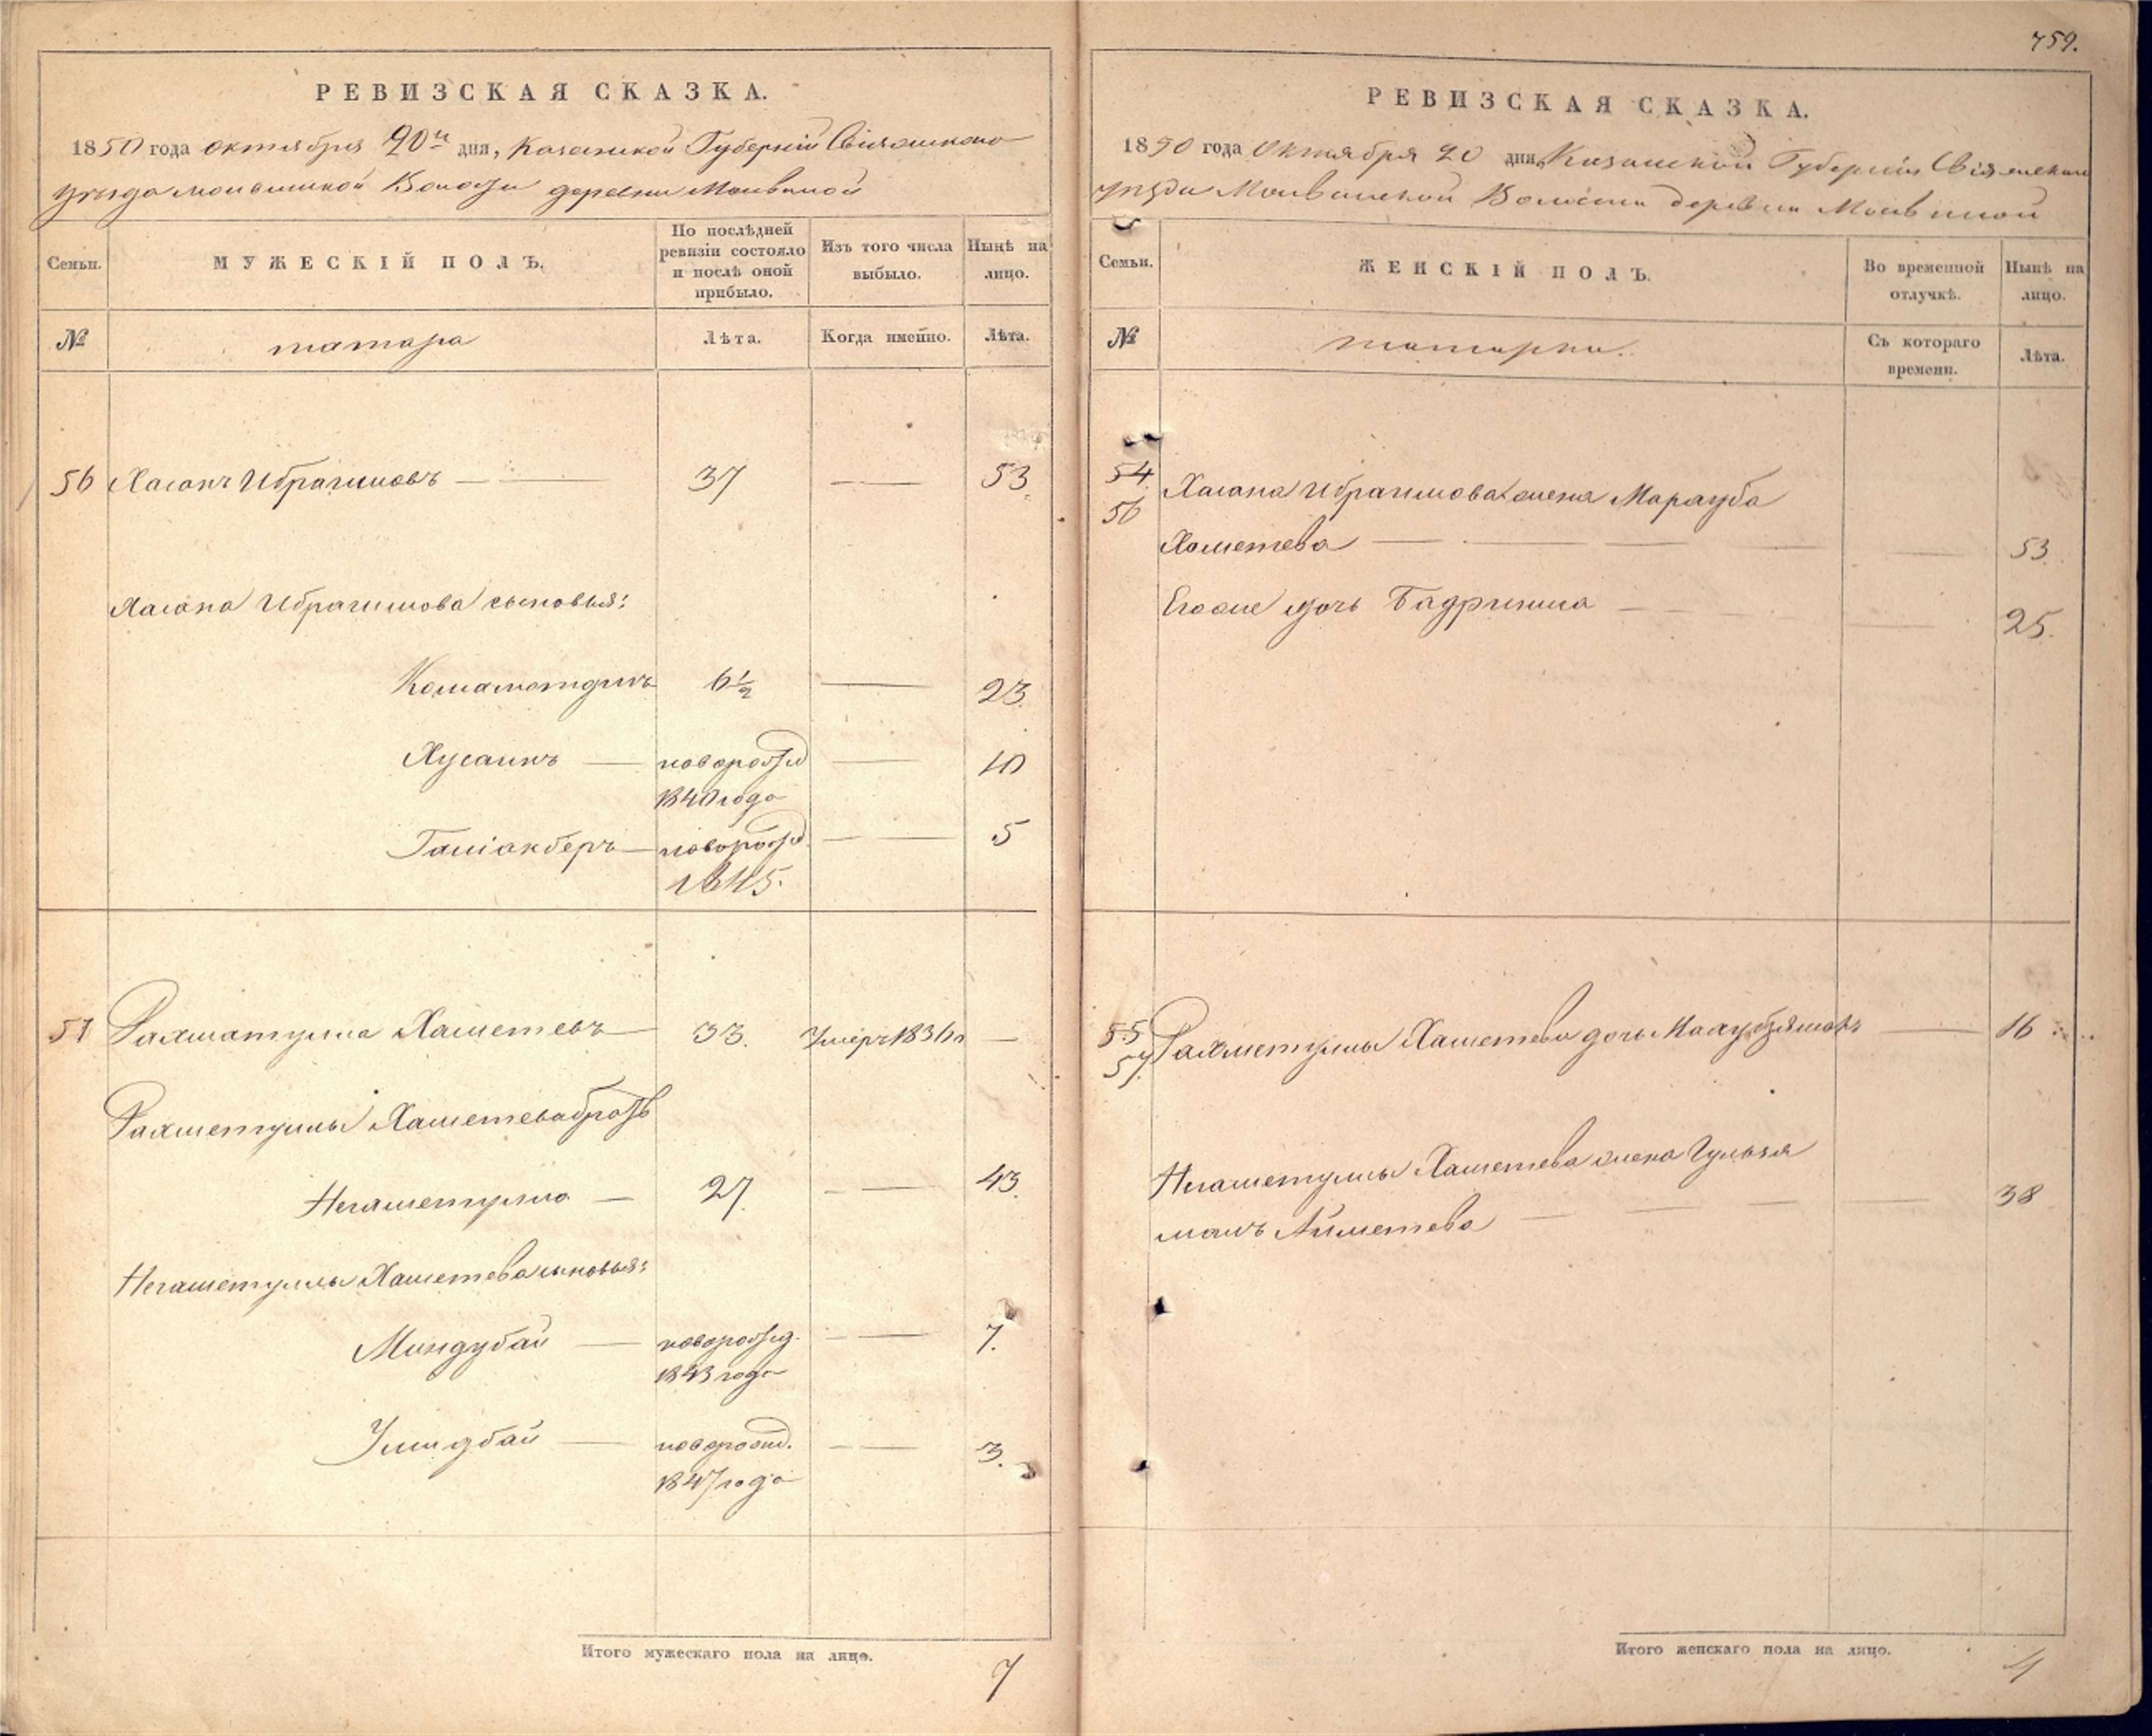 759.
РЕВИЗСКАЯ СКАЗКА.
1850 года октября 20го дня, Казанской Губернiи Свiяжскаго
уезда Молвинской Волости деревни Молвиной
Семьи. МУЖЕСКIЙ ПОЛЪ. По послѣдней ревизiи состояло и послѣ оной прибыло. Изъ того числа выбыло. Нынѣ на лицо.
№ татара Лѣта. Когда имейно. Лѣта.
56 Хасанъ Ибрагимовъ 37 — 53
Хасана Ибрагимова сыновья:
Комамотдинъ 6½ — 23
Хусаинъ новорожд — 10
1840 года
Галiакберъ новорожд — 5
1845.
57 Рахматулла Хаметевъ 33. Умеръ 1836 —
Рахметуллы Хаметева братъ
Негаметулла — 27. — 43.
Негаметуллы Хаметева сыновья:
Миндубай новорожд. — 7.
1843 года
Умидбай новорожд. — 3.
1847 года
Итого мужескаго пола на лицо.
7
РЕВИЗСКАЯ СКАЗКА.
1850 года Октября 20 дня, Казанской Губернiи Свiяжскаго
уезда Молвинской Волости деревни Молвиной
Семьи. ЖЕНСКIЙ ПОЛЪ. Во временной отлучкѣ. Нынѣ на лицо.
№ татарки. Съ котораго времени. Лѣта.
54
56 Хасана Ибрагимова жена Марауба
Хаметева — 53.
Его же дочь Бадриниса — 25.
55
57 Рахметуллы Хаметева дочь Махубзямалъ — 16
Негаметуллы Хаметева жена Гульзя
малъ Айметева — 38
Итого женскаго пола на лицо.
4